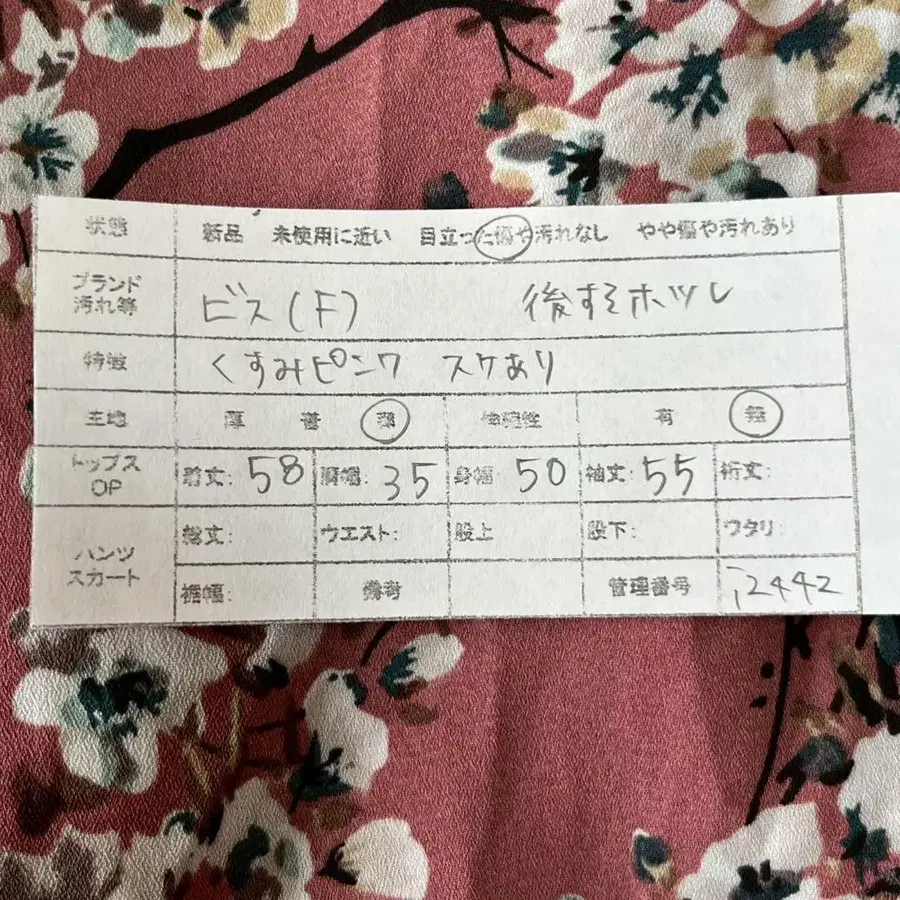 状態 新品 未使用に近い 目立った傷や汚れなし やや傷や汚れあり
ブランド 汚れ等 ビス(F) 後すそホツレ
特徴 くすみピンク スケあり
生地 厚 普 薄 伸縮性 有 無
トップス OP 着丈: 58 肩幅: 35 身幅: 50 袖丈: 55 裄丈:
パンツ スカート 総丈: ウエスト: 股上 股下: ワタリ:
裾幅: 備考 管理番号 i2442